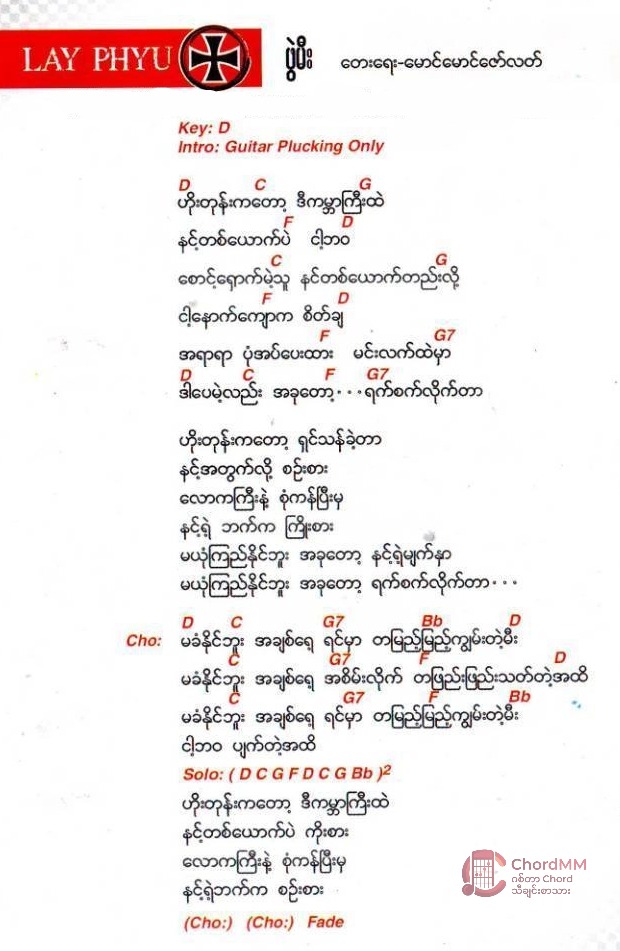 LAY PHYU ဖွဲမီး တေးရေး-မောင်မောင်ဇော်လတ်
Key: D
Intro: Guitar Plucking Only
D C G
ဟိုးတုန်းကတော့ ဒီကမ္ဘာကြီးထဲ
F D
နင့်တစ်ယောက်ပဲ ငါ့ဘဝ
C G
စောင့်ရှောက်မဲ့သူ နင်တစ်ယောက်တည်းလို့
F D
ငါ့နောက်ကျောက စိတ်ချ
F G7
အရာရာ ပုံအပ်ပေးထား မင်းလက်ထဲမှာ
D C F G7
ဒါပေမဲ့လည်း အခုတော့...ရက်စက်လိုက်တာ
ဟိုးတုန်းကတော့ ရှင်သန်ခဲ့တာ
နင့်အတွက်လို့ စဉ်းစား
လောကကြီးနဲ့ စုံကန်ပြီးမှ
နင့်ရဲ့ ဘက်က ကြိုးစား
မယုံကြည်နိုင်ဘူး အခုတော့ နင့်ရဲ့မျက်နှာ
မယုံကြည်နိုင်ဘူး အခုတော့ ရက်စက်လိုက်တာ...
D C G7 Bb D
Cho: မခံနိုင်ဘူး အချစ်ရေ့ ရင်မှာ တမြည့်မြည့်ကျွမ်းတဲ့မီး
C G7 F D
မခံနိုင်ဘူး အချစ်ရေ့ အစိမ်းလိုက် တဖြည်းဖြည်းသတ်တဲ့အထိ
C G7 F Bb
မခံနိုင်ဘူး အချစ်ရေ့ ရင်မှာ တမြည့်မြည့်ကျွမ်းတဲ့မီး
ငါ့ဘဝ ပျက်တဲ့အထိ
Solo: ( D C G F D C G Bb )²
ဟိုးတုန်းကတော့ ဒီကမ္ဘာကြီးထဲ
နင့်တစ်ယောက်ပဲ ကိုးစား
လောကကြီးနဲ့ စုံကန်ပြီးမှ
နင့်ရဲ့ဘက်က စဉ်းစား
(Cho:) (Cho:) Fade
ChordMM
ဂစ်တာ Chord
သီချင်းစာသား